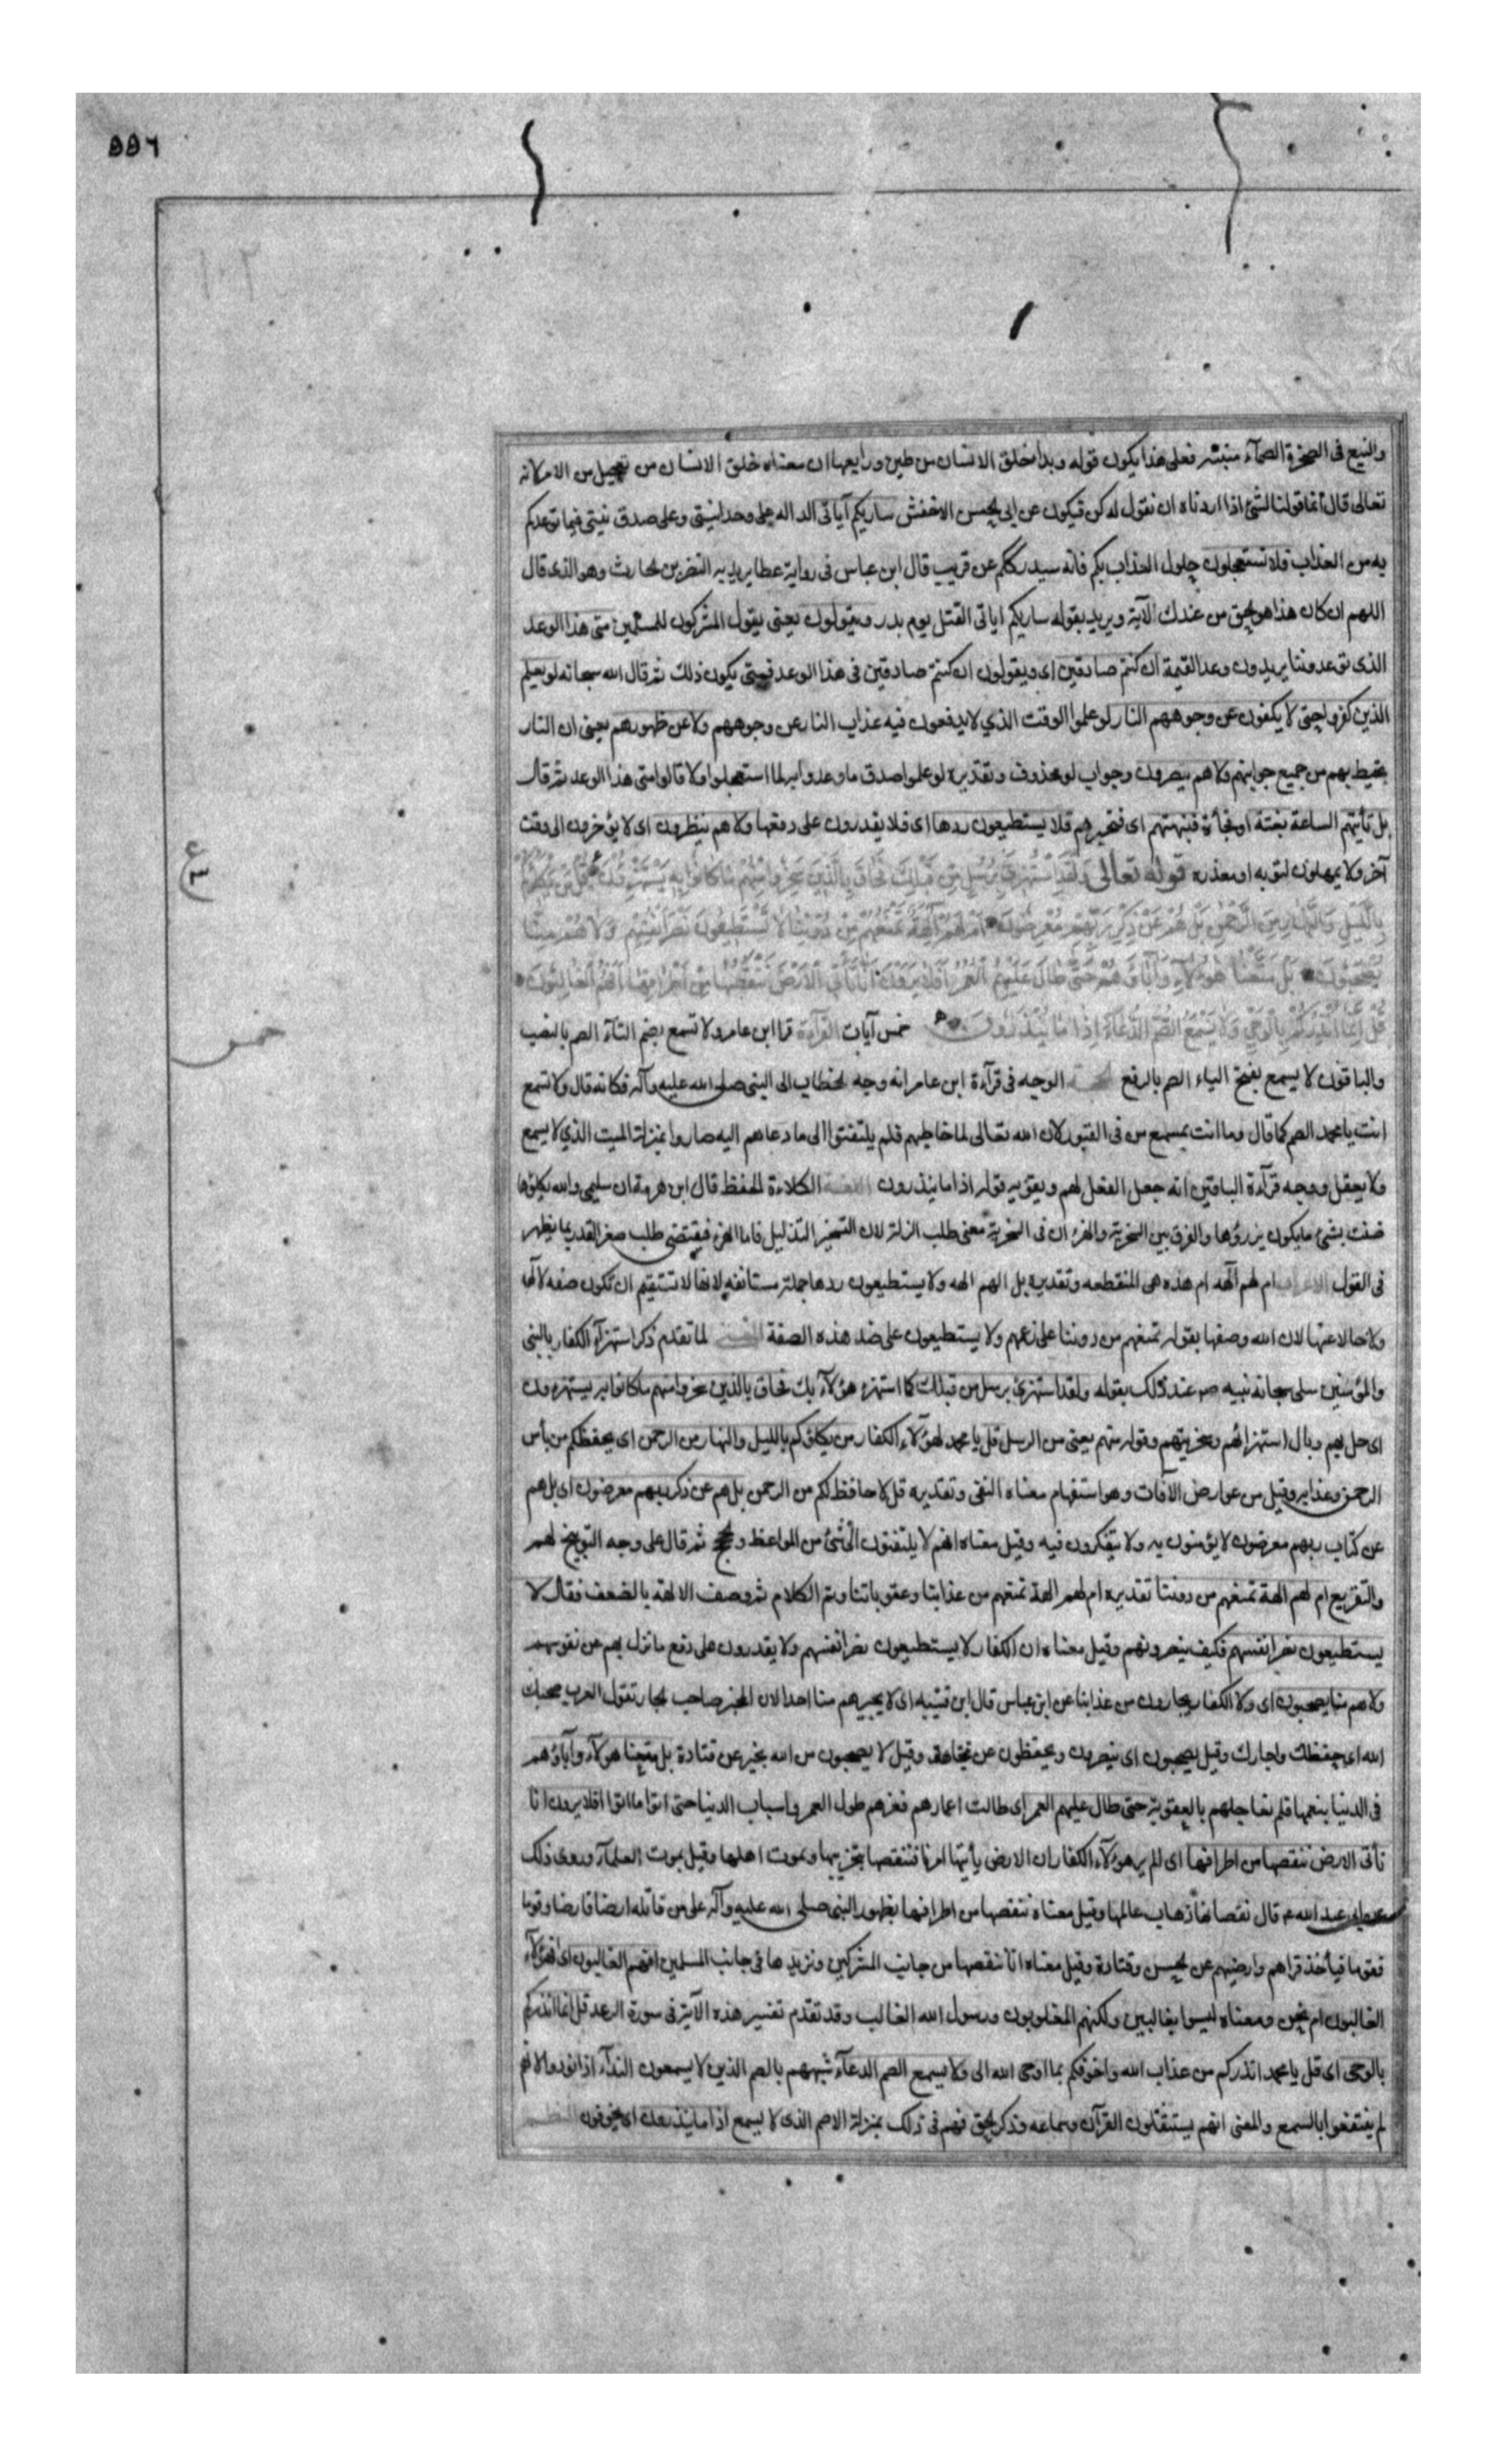 ٩٩٦
والنبع فى الصخرة الصمآء منبته فعلى هذا يكون قوله وبدا خلق الانسان من طين ورابعها ان معناه خلق الانسان من تعجيل من الامر لانه
تعالى قال انما قولنا لشئ اذا اردناه ان نقول له كن فيكون عن ابى الحسن الاخفش ساريكم آياتى الداله على وحدانيتى وعلى صدق نبيتى فيما توعدكم
به من العذاب فلا تستعجلون حلول العذاب بكم فانه سيدرككم عن قريب قال ابن عباس فى رواية عطا يريد به النضر بن الحارث وهو الذى قال
اللهم ان كان هذا هو الحق من عندك الآية ويريد بقوله ساريكم اياتى القتل يوم بدر ويقولون يعنى يقول المشركون للمسلمين متى هذا الوعد
الذى توعدوننا يريدون وعد القيمة ان كنتم صادقين اى ويقولون ان كنتم صادقين فى هذا الوعد فمتى يكون ذلك ثم قال الله سبحانه لو يعلم
الذين كفروا حين لا يكفون عن وجوههم النار لو علموا الوقت الذي لا يدفعون فيه عذاب النار عن وجوههم ولا عن ظهورهم يعنى ان النار
يحيط بهم من جميع جوانبهم ولا هم ينصرون وجواب لو محذوف وتقديره لو علموا صدق ما وعدوا به لما استعجلوا ولا قالوا متى هذا الوعد ثم قال
بل تأتيهم الساعة بغتة او فجأة فتبهتهم اى فتحيرهم فلا يستطيعون ردها اى فلا يقدرون على دفعها ولا هم ينظرون اى لا يؤخرون الى وقت
آخر ولا يمهلون لتوبه او معذره قوله تعالى وَلَقَدِ اسْتُهْزِئَ بِرُسُلٍ مِنْ قَبْلِكَ فَحَاقَ بِالَّذِينَ سَخِرُوا مِنْهُمْ مَا كَانُوا بِهِ يَسْتَهْزِؤُنَ قُلْ مَنْ يَكْلَؤُكُمْ
بِاللَّيْلِ وَالنَّهَارِ مِنَ الرَّحْمٰنِ بَلْ هُمْ عَنْ ذِكْرِ رَبِّهِمْ مُعْرِضُونَ اَمْ لَهُمْ آلِهَةٌ تَمْنَعُهُمْ مِنْ دُونِنَا لَا يَسْتَطِيعُونَ نَصْرَ اَنْفُسِهِمْ وَلَا هُمْ مِنَّا
يُصْحَبُونَ بَلْ مَتَّعْنَا هٰؤُلَاءِ وَآبَاءَهُمْ حَتّٰى طَالَ عَلَيْهِمُ الْعُمُرُ اَفَلَا يَرَوْنَ اَنَّا نَأْتِى الْاَرْضَ نَنْقُصُهَا مِنْ اَطْرَافِهَا اَفَهُمُ الْغَالِبُونَ
قُلْ اِنَّمَا اُنْذِرُكُمْ بِالْوَحْىِ وَلَا يَسْمَعُ الصُّمُّ الدُّعَاءَ اِذَا مَا يُنْذَرُونَ خمس آيات القرآءة قرا ابن عامر ولا تسمع بضم التآء الصم بالنصب
والباقون لا يسمع بفتح الياء الصم بالرفع الوجه فى قرآءة ابن عامر انه وجه الخطاب الى النبى صلى الله عليه وآله فكانه قال ولا تسمع
انت يا محمد الصم كما قال وما انت بمسمع من فى القبور لان الله تعالى لما خاطبهم فلم يلتفتوا الى ما دعاهم اليه صاروا بمنزلة الميت الذي لا يسمع
ولا يعقل ووجه قرآءة الباقين انه جعل الفعل لهم ويقويه قوله اذا ما ينذرون اللغة الكلاءة الحفظ قال ابن هرمة ان سليمى والله يكلؤها
ضنت بشئ ما يكون يزرؤها والفرق بين السخرية والهزء ان فى السخرية معنى طلب الذلة لان التسخير التذليل فاما الهزء فيقتضى طلب صغر القدر بما يظهر
فى القول الاعراب ام لهم آلهه ام هذه هى المنقطعه وتقديره بل الهم الهه ولا يستطيعون ردها جملة مستانفه لانها لا تستقيم ان تكون صفه لآلهة
ولا حالا عنها لان الله وصفها بقوله تمنعهم من دوننا على زعمهم ولا يستطيعون على ضد هذه الصفة لما تقدم ذكر استهزآء الكفار بالنبى
والمؤمنين سلى سبحانه نبيه ص عند ذلك بقوله ولقد استهزئ برسل من قبلك كما استهزء هؤلآء بك فحاق بالذين سخروا منهم ما كانوا به يستهزءون
اى حل بهم وبال استهزائهم وسخريتهم وقوله منهم يعنى من الرسل قل يا محمد لهؤلآء الكفار من يكلؤكم بالليل والنهار من الرحمن اى يحفظكم من بأس
الرحمن وعذابه وقيل من عوارض الآفات وهو استفهام معناه النفى وتقديره قل لا حافظ لكم من الرحمن بل هم عن ذكر ربهم معرضون اى بل هم
عن كتاب ربهم معرضون لا يؤمنون به ولا يتفكرون فيه وقيل معناه انهم لا يلتفتون الى شئ من المواعظ والحجج ثم قال على وجه التوبيخ لهم
والتقريع ام لهم الهة تمنعهم من دوننا تقديره ام لهم الهة تمنعهم من عذابنا وعقوباتنا وتم الكلام ثم وصف الالهة بالضعف فقال لا
يستطيعون نصر انفسهم فكيف ينصرونهم وقيل معناه ان الكفار لا يستطيعون نصر انفسهم ولا يقدرون على دفع ما نزل بهم عن نفوسهم
ولا هم منا يصحبون اى ولا الكفار يجارون من عذابنا عن ابن عباس قال ابن قتيبه اى لا يجيرهم منا احد لان المجير صاحب لجاره تقول العرب صحبك
الله اى حفظك واجارك وقيل يصحبون اى ينصرون ويحفظون عن مجاهد وقيل لا يصحبون من الله بخير عن قتادة بل متعنا هؤلآء وآباؤهم
فى الدنيا بنعمها فلم نعاجلهم بالعقوبة حتى طال عليهم العمر اى طالت اعمارهم فغرهم طول العمر واسباب الدنيا حتى اتوا ما اتوا افلا يرون انا
نأتى الارض ننقصها من اطرافها اى الم ير هؤلآء الكفار ان الارض يأتيها امرنا فننقصها بتخريبها وبموت اهلها وقيل بموت العلمآء وروى ذلك
عن ابى عبد الله ع قال نقصانها ذهاب عالمها وقيل معناه ننقصها من اطرافها بظهور النبى صلى الله عليه وآله على من قاتله ارضا فارضا وقوما
فقوما فيأخذ قراهم وارضيهم عن الحسن وقتادة وقيل معناه انا ننقصها من جانب المشركين ونزيدها فى جانب المسلمين افهم الغالبون اى افهؤلآء
الغالبون ام نحن ومعناه ليسوا بغالبين ولكنهم المغلوبون ورسول الله الغالب وقد تقدم تفسير هذه الآية فى سورة الرعد قل انما انذركم
بالوحى اى قل يا محمد انذركم من عذاب الله واخوفكم بما اوحى الله الى ولا يسمع الصم الدعآء شبههم بالصم الذين لا يسمعون الندآء اذا نودوا لانهم
لم ينتفعوا بالسمع والمعنى انهم يستثقلون القرآن وسماعه وذكر الحق فهم فى ذلك بمنزلة الاصم الذى لا يسمع اذا ما ينذرون اى يخوفون النظم
ع
٣
خمس